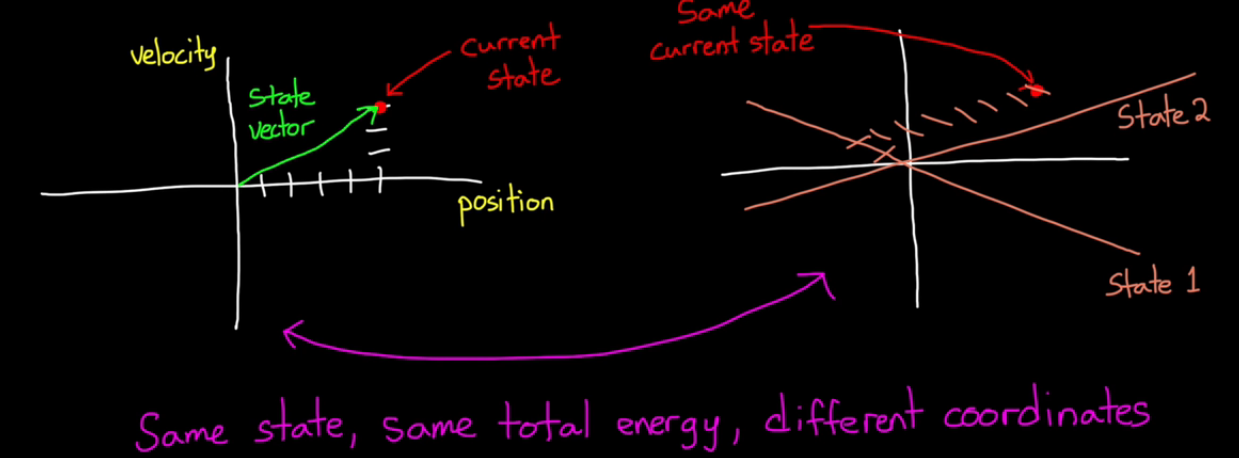 velocity
State
vector
Current
State
position
Same
current state
State 2
State 1
Same state, same total energy, different coordinates